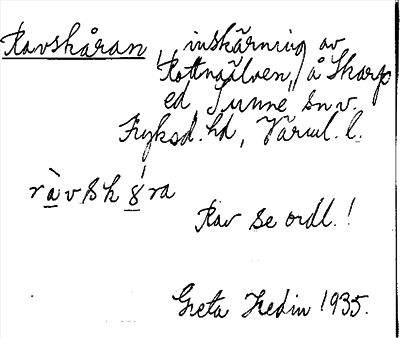 Ravskåran, inskärning av
Rottnaälven, å Skarp
ed, Sunne sn v.
Fryksd. hd, Värml. l.
ràvskǻra
Rav se ordl.!
Greta Hedin 1935.